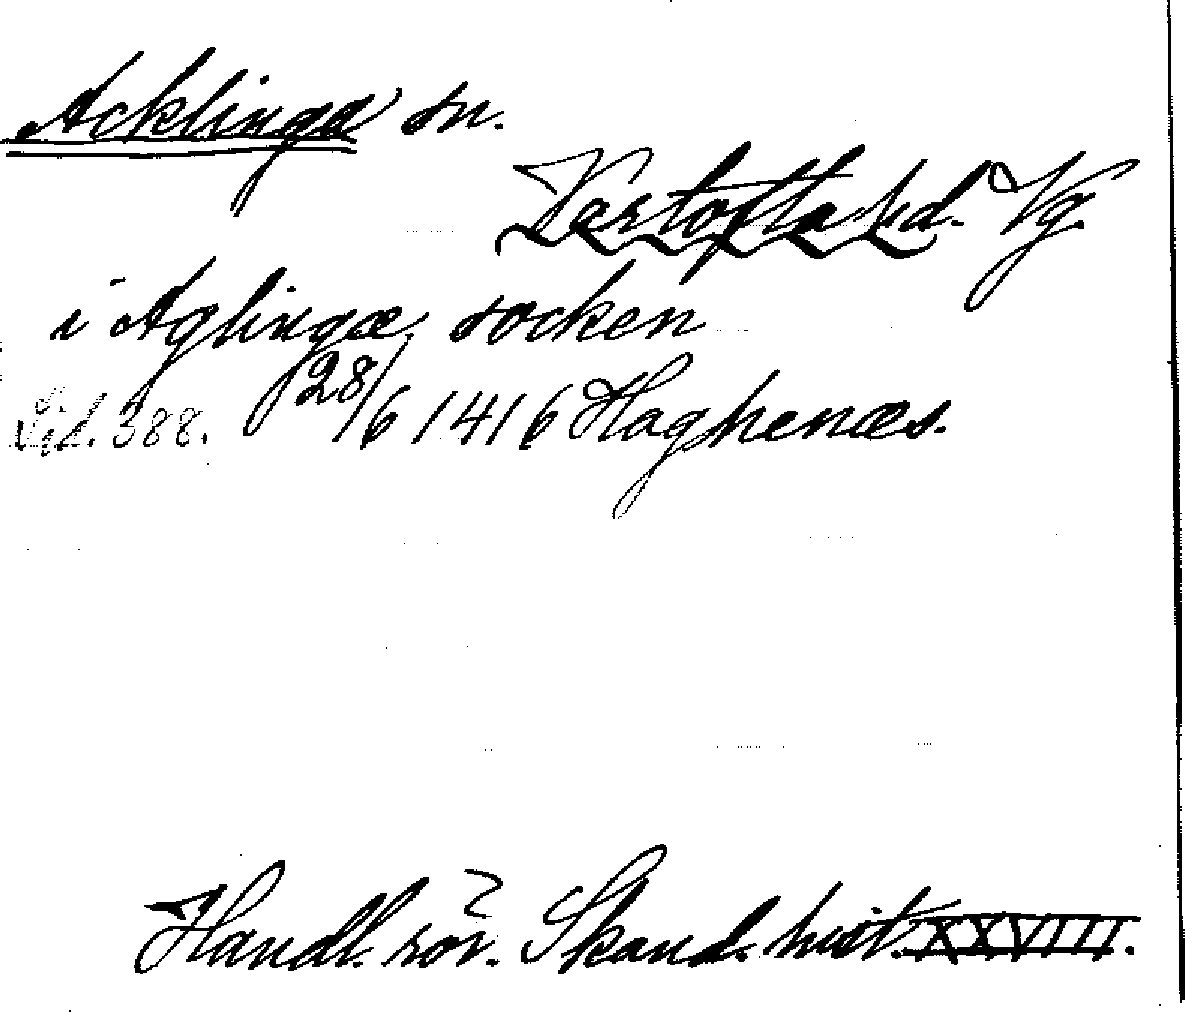 Acklinga sn.
Kartofta hd. Vg.
i Aglingæ socken
Sid. 388. 28/6 1416 Haghenæs.
Handl. rör. Skand. hist. XXVIII.